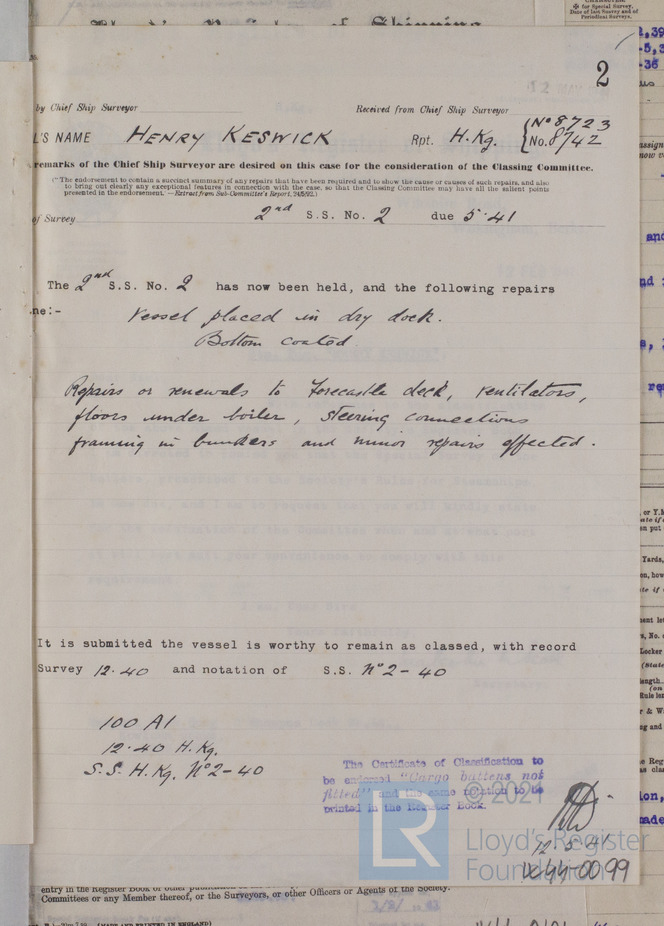 for Special Survey,
Date of last Survey and of
Periodical Surveys.
12 MAY
2
by Chief Ship Surveyor
Received from Chief Ship Surveyor
L'S NAME HENRY KESWICK Rpt. H.Kg. {No 8723
No. 8742
remarks of the Chief Ship Surveyor are desired on this case for the consideration of the Classing Committee.
(*The endorsement to contain a succinct summary of any repairs that have been required and to show the cause or causes of such repairs, and also
to bring out clearly any exceptional features in connection with the case, so that the Classing Committee may have all the salient points
presented in the endorsement.—Extract from Sub-Committee's Report, 24/5/92.)
of Survey 2nd S.S. No. 2 due 5.41
The 2nd S.S. No. 2 has now been held, and the following repairs
ne:-
Vessel placed in dry dock.
Bottom coated
Repairs or renewals to Forecastle deck, ventilators,
floors under boiler, steering connections
framing in bunkers and minor repairs effected.
It is submitted the vessel is worthy to remain as classed, with record
Survey 12.40 and notation of S.S. No 2 - 40
100 A1
12.40 H.Kg.
S.S. H.Kg. No 2 - 40
The Certificate of Classification to
be endorsed "Cargo battens not
fitted" and the same notation to be
printed in the Register Book.
© 2021
LR
Lloyd's Register
Foundation
12.5.41
W44-0099
entry in the Register Book or other publication
Committees or any Member thereof, or the Surveyors, or other Officers or Agents of the Society.
(MADE AND PRINTED IN ENGLAND)